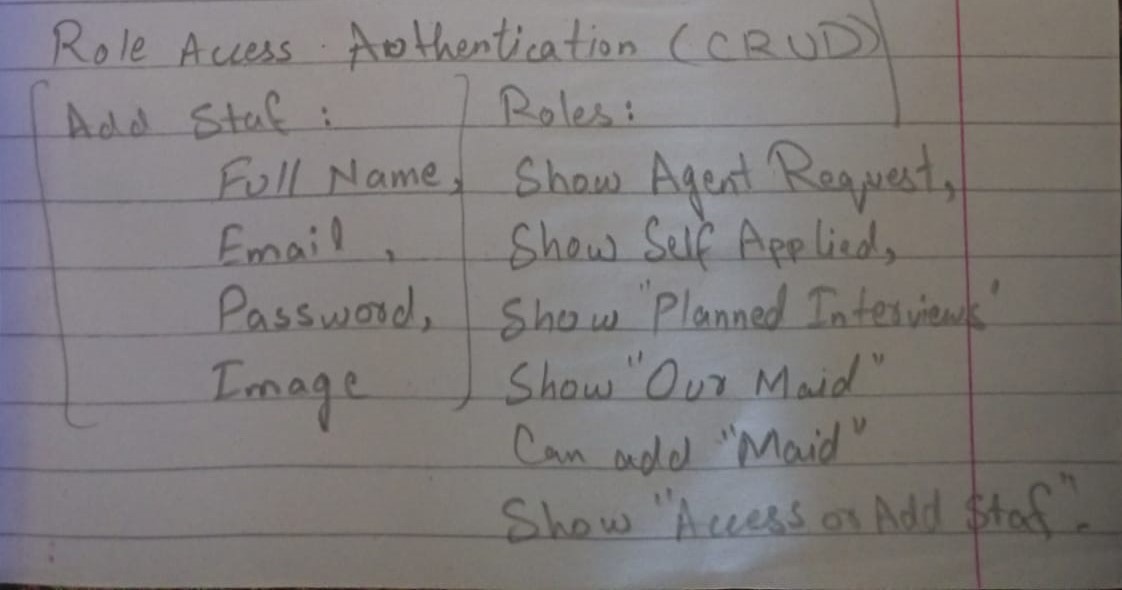 Role Access Authentication (CRUD)
Add Staf :
Full Name,
Email ,
Password,
Image
Roles :
Show Agent Request,
Show Self Applied,
Show "Planned Interviews"
Show "Our Maid"
Can add "Maid"
Show "Access or Add Staf".